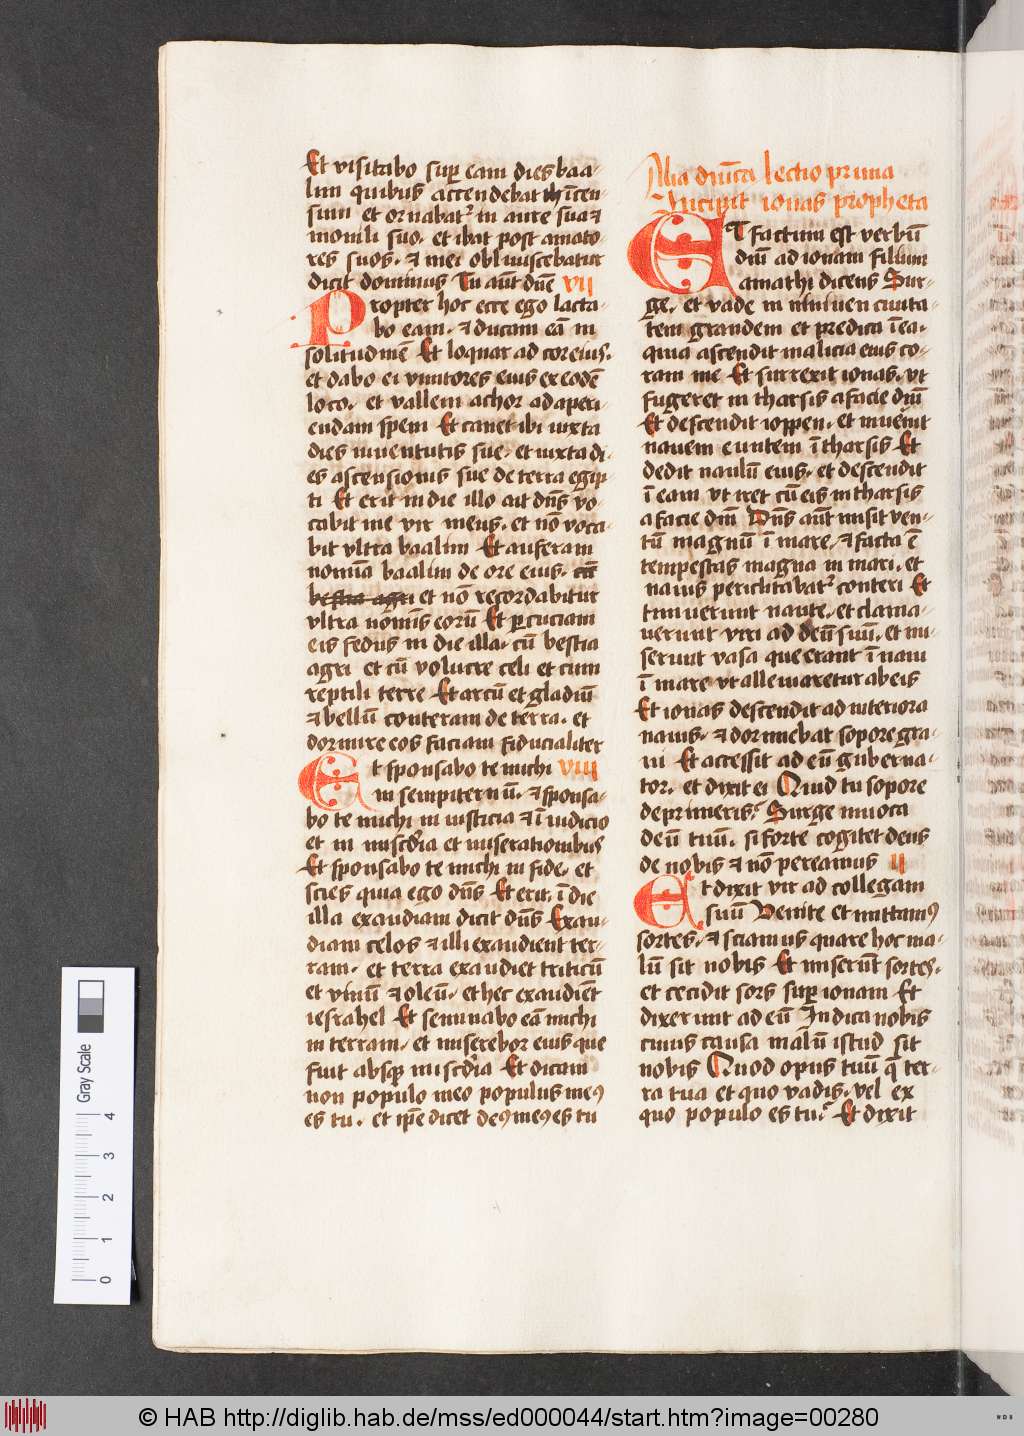 Et visitabo sup̄ eam dies baa-
lim quibus accendebat incen-
sum et ornabat᷑ in aure sua ⁊
monili suo. et ibat post amato-
res suos. ⁊ mei obliuiscebatur
dicit dominus Tu aūt dn̄e VII
Propter hoc ecce ego lacta-
bo eam. ⁊ ducam eā in
solitudinē Et loquar ad cor eius.
et dabo ei vinitores eius ex eodē
loco. et vallem achor ad aperi-
endam spem Et canet ibi iuxta
dies iuuentutis sue. et iuxta di-
es ascensionis sue de terra egip-
ti Et erit in die illo ait dn̄s vo-
cabit me vir meus. et nō voca-
bit vltra baalim Et auferam
nomīa baalim de ore eius. cū
bestia agri et nō recordabitur
vltra nominis eorū Et p̄cuciam
eis fedus in die illa. cū bestia
agri et cū volucre celi et cum
reptili terre Et arcū et gladiū
⁊ bellū conteram de terra. et
dormire eos faciam fiducialiter
Et sponsabo te michi VIII
in sempiternū. ⁊ sponsa-
bo te michi in iusticia ⁊ ī iudicio
et in mīscd̄ia et miserationibus
Et sponsabo te michi in fide. et
scies quia ego dn̄s Et erit. ī die
illa exaudiam dicit dn̄s Exau-
diam celos ⁊ illi exaudient ter-
ram. et terra exaudiet triticū
et vinū ⁊ oleū. et hec exaudiēt
iesrahel Et seminabo eā michi
in terram. et miserebor eius que
fuit absq̄ mīscd̄ia Et dicam
non populo meo populus meꝰ
es tu. et ip̄e dicet deꝰ meꝰ es tu
Alia dn̄ica lectio prima
Incipit ionas propheta
ET factum est verbū
dn̄i ad ionam filium
amathi dicens Sur-
ge. et vade in niniuen ciuita-
tem grandem et predica ī ea.
quia ascendit malicia eius co-
ram me Et surrexit ionas. vt
fugeret in tharsis a facie dn̄i
Et descendit ioppen. et inuenit
nauem euntem ī tharsis Et
dedit naulū eius. et descendit
ī eam vt iret cū eis in tharsis
a facie dn̄i Dn̄s aūt misit ven-
tū magnū ī mare. ⁊ facta ē
tempestas magna in mari. et
nauis periclitabat᷑ conteri Et
timuerunt naute. et clama-
uerunt viri ad deū suū. et mi-
serunt vasa que erant ī naui
ī mare vt alleuiaretur ab eis
Et ionas descendit ad interiora
nauis. ⁊ dormiebat sopore gra-
ui Et accessit ad eū guberna-
tor. et dixit ei Quid tu sopore
deprimeris? Surge inuoca
deū tuū. si forte cogitet deus
de nobis ⁊ nō pereamus II
Et dixit vir ad collegam
suū Venite et mittamꝰ
sortes. ⁊ sciamus quare hoc ma-
lū sit nobis Et miserūt sortes.
et cecidit sors sup̄ ionam Et
dixerunt ad eū Indica nobis
cuius causa malū istud sit
nobis Quod opus tuū q̄ ter-
ra tua et quo vadis. vel ex
quo populo es tu? Et dixit
Gray Scale
0 1 2 3 4
© HAB http://diglib.hab.de/mss/ed000044/start.htm?image=00280